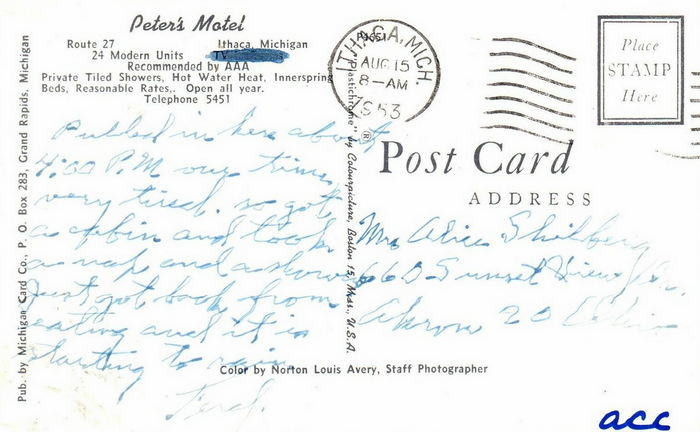 Peter's Motel
Route 27 Ithaca, Michigan
24 Modern Units TV
Recommended by AAA
Private Tiled Showers, Hot Water Heat, Innerspring
Beds, Reasonable Rates,. Open all year.
Telephone 5451
Pulled in here about
4:00 P.M our time
very tired. so got
a cabin and took
a nap and a shower
Just got back from
eating and it is
starting to rain.
Pub. by Michigan Card Co., P. O. Box 283, Grand Rapids, Michigan
Plastichrome" ® by Colourpicture, Boston 15, Mass., U.S.A.
ITHACA, MICH.
AUG 15
8-AM
1953
Place
STAMP
Here
Post Card
ADDRESS
Mrs Alice
660 Sunset View Dr.
Akron 20 Ohio
Color by Norton Louis Avery, Staff Photographer
acc